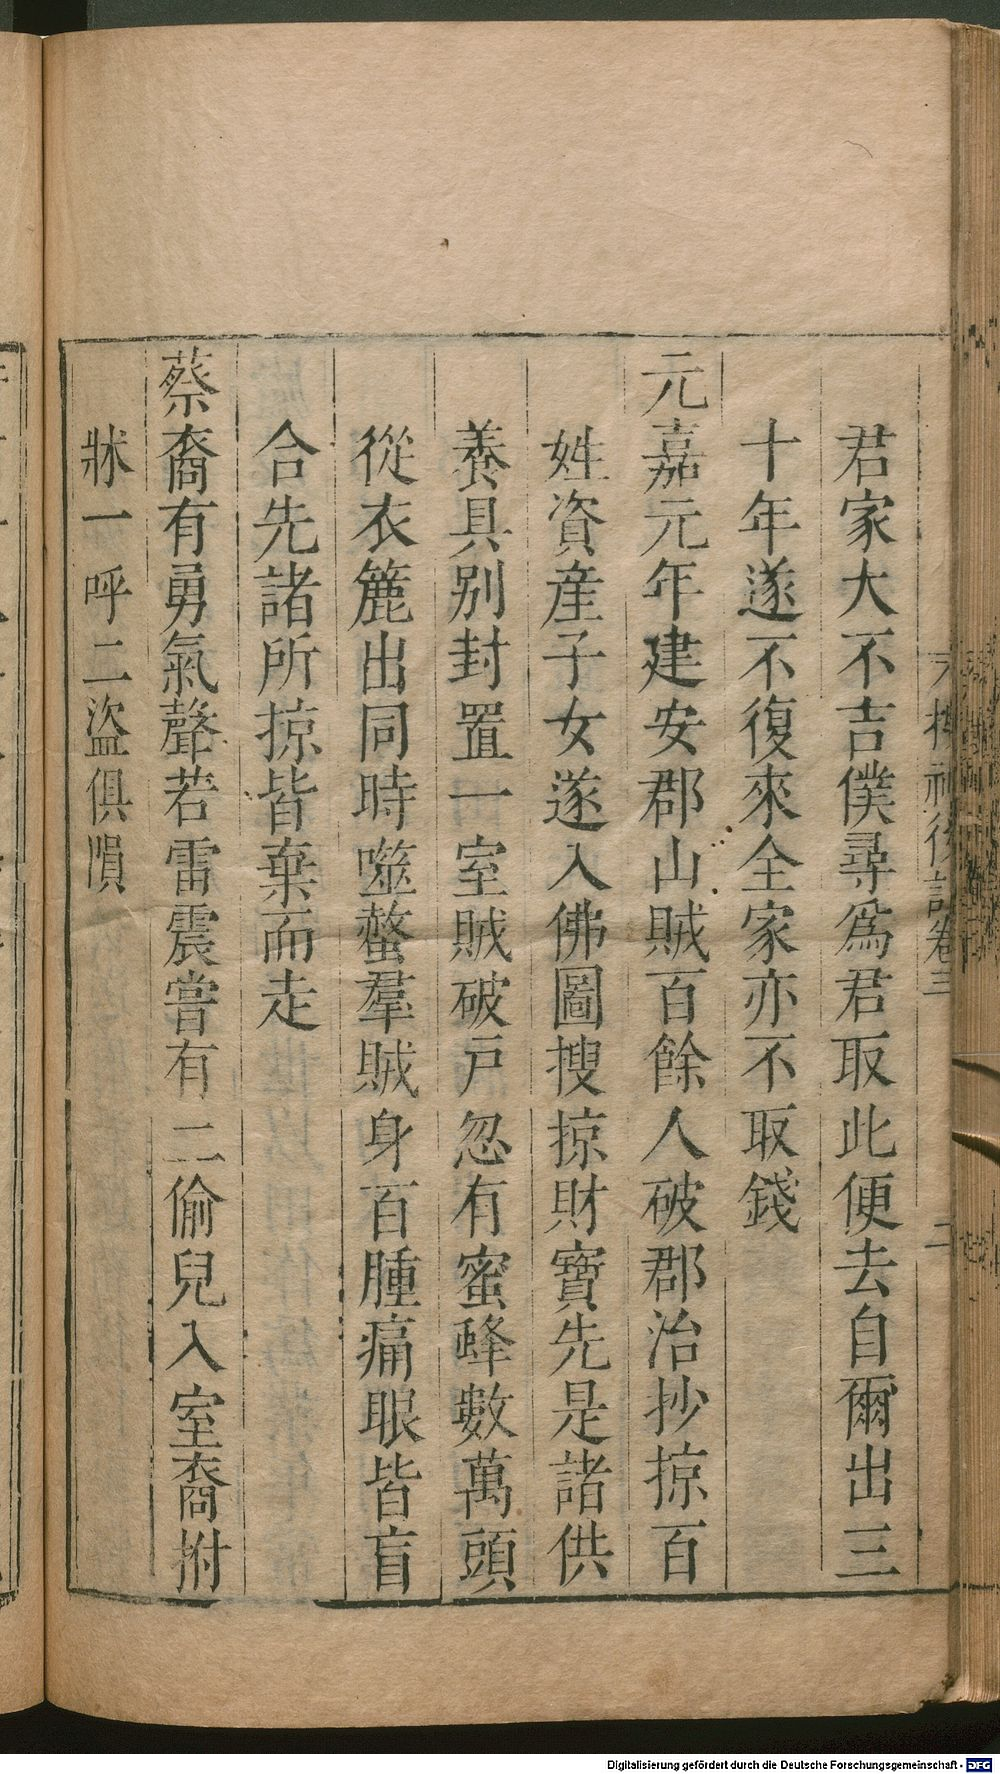 君家大不吉僕尋爲君取此便去自爾出三
十年遂不復來全家亦不取錢
元嘉元年建安郡山賊百餘人破郡治抄掠百
姓資產子女遂入佛圖搜掠財寶先是諸供
養具别封置一室賊破戸忽有蜜蜂數萬頭
從衣簏出同時噬螫羣賊身百腫痛眼皆盲
合先諸所掠皆棄而走
蔡裔有勇氣聲若雷震嘗有二偷兒入室裔拊
牀一呼二盜俱隕
搜神後記卷三
二
Digitalisierung gefördert durch die Deutsche Forschungsgemeinschaft - DFG